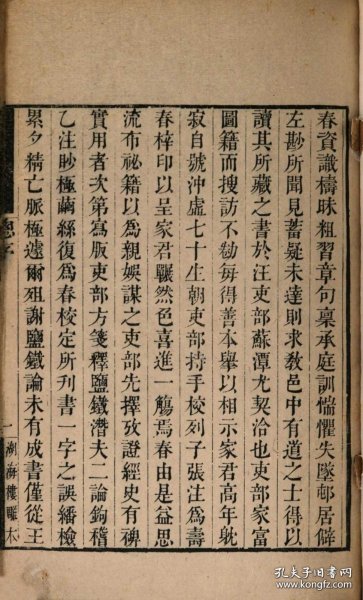 春資識檮昧粗習章句稟承庭訓惴懼失墜邨居僻
左尠所聞見蓄疑未達則求敎邑中有道之士得以
讀其所藏之書於汪吏部蘇潭尤契洽也吏部家富
圖籍而搜訪不勌每得善本舉以相示家君高年躭
寂自號沖虛七十生朝吏部持手校列子張注爲壽
春梓印以呈家君驩然色喜進一觴焉春由是益思
流布祕籍以爲親娛謀之吏部先擇攷證經史有裨
實用者次第寫版吏部方箋釋鹽鐵潛夫二論鉤稽
乙注眇極繭絲復爲春校定所刊書一字之誤繙檢
累夕精亡脈極遽爾殂謝鹽鐵論未有成書僅從王
總序
一
湖海樓雕本
孔夫子旧书网